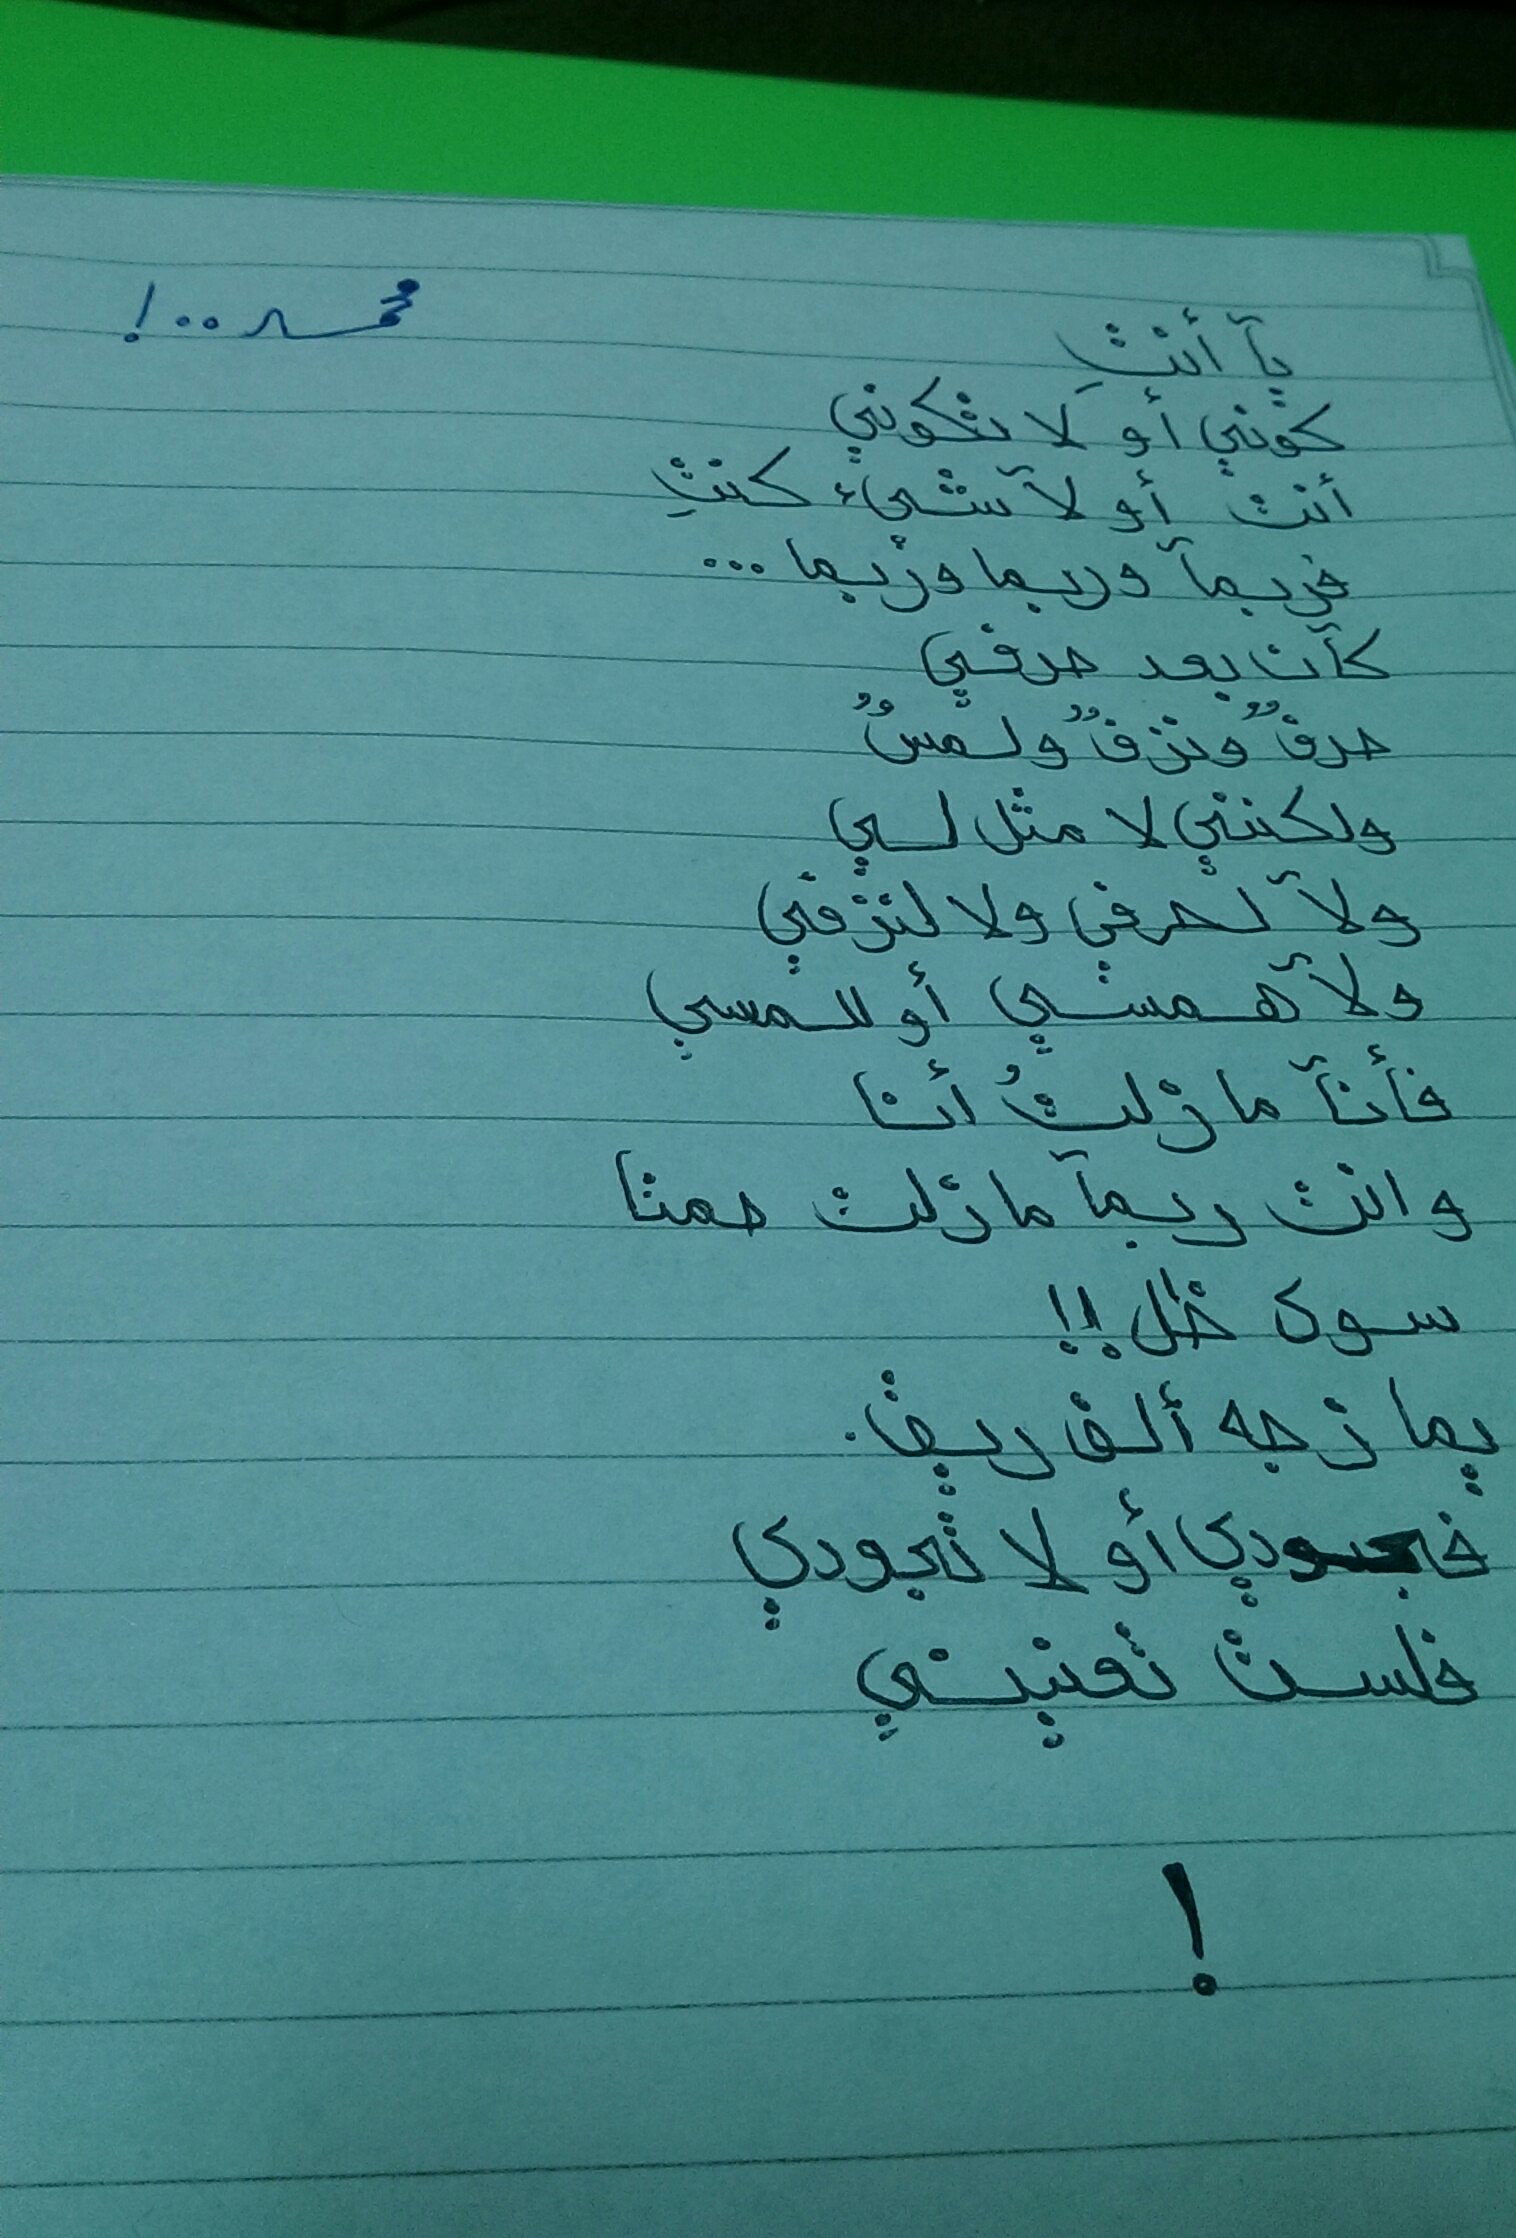 محمد ..!
يآ أنتِ
كوني أو لا تكوني
أنت أو لآ شيء كنتِ
فربمآ وربما وربما ...
كآن بعد حرفي
حرفٌ ونزفٌ ولمسٌ
ولكنني لا مثل لي
ولآ لحرفي ولا لنزفي
ولآ همستي أو للمسي
فأنآ ما زلتُ أنا
وانت ربمآ مازلت صمتا
سوى ظل !!
يمازجه ألف ريف.
فجودي أو لا تجودي
فلست تعنيني
!